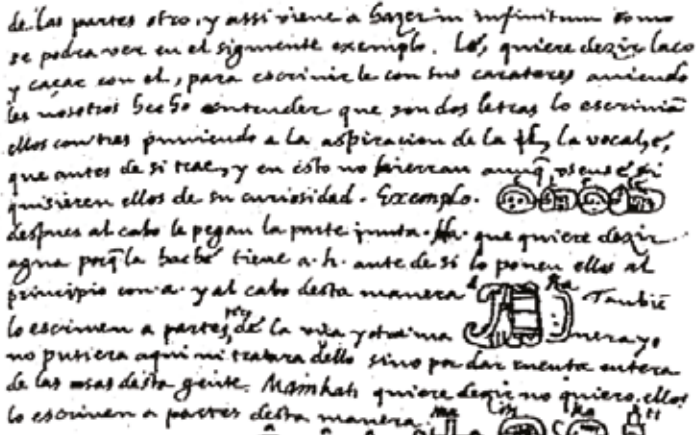 de las partes otro, y assi viene a hazer in infinitum como
se podra ver en el siguiente exemplo. Lé, quiere dezir laço
y caçar con el, para escrivirle con sus carateres aviendo
les nosotros hecho entender que son dos letras lo escrivian
ellos con tres puniendo a la aspiracion de la l, la vocal, é,
que antes de si trae, y en esto no hierran aunq̃ usense, si
quisieren ellos de su curiosidad. Exemplo.
despues al cabo le pegan la parte junta. Ha. que quiere dezir
agua porq̃ la haché tiene a. h. ante de si lo ponen ellos al
principio con a. y al cabo desta manera ha Tambiẽ
lo escriven a partes, pero de la una y otra ma nera yo
no pusiera aqui ni tratara dello sino por dar cuenta entera
de las cosas desta gente. Mainkati quiere dezir no quiero, ellos
lo escriven a partes desta manera. ma i n ka ti